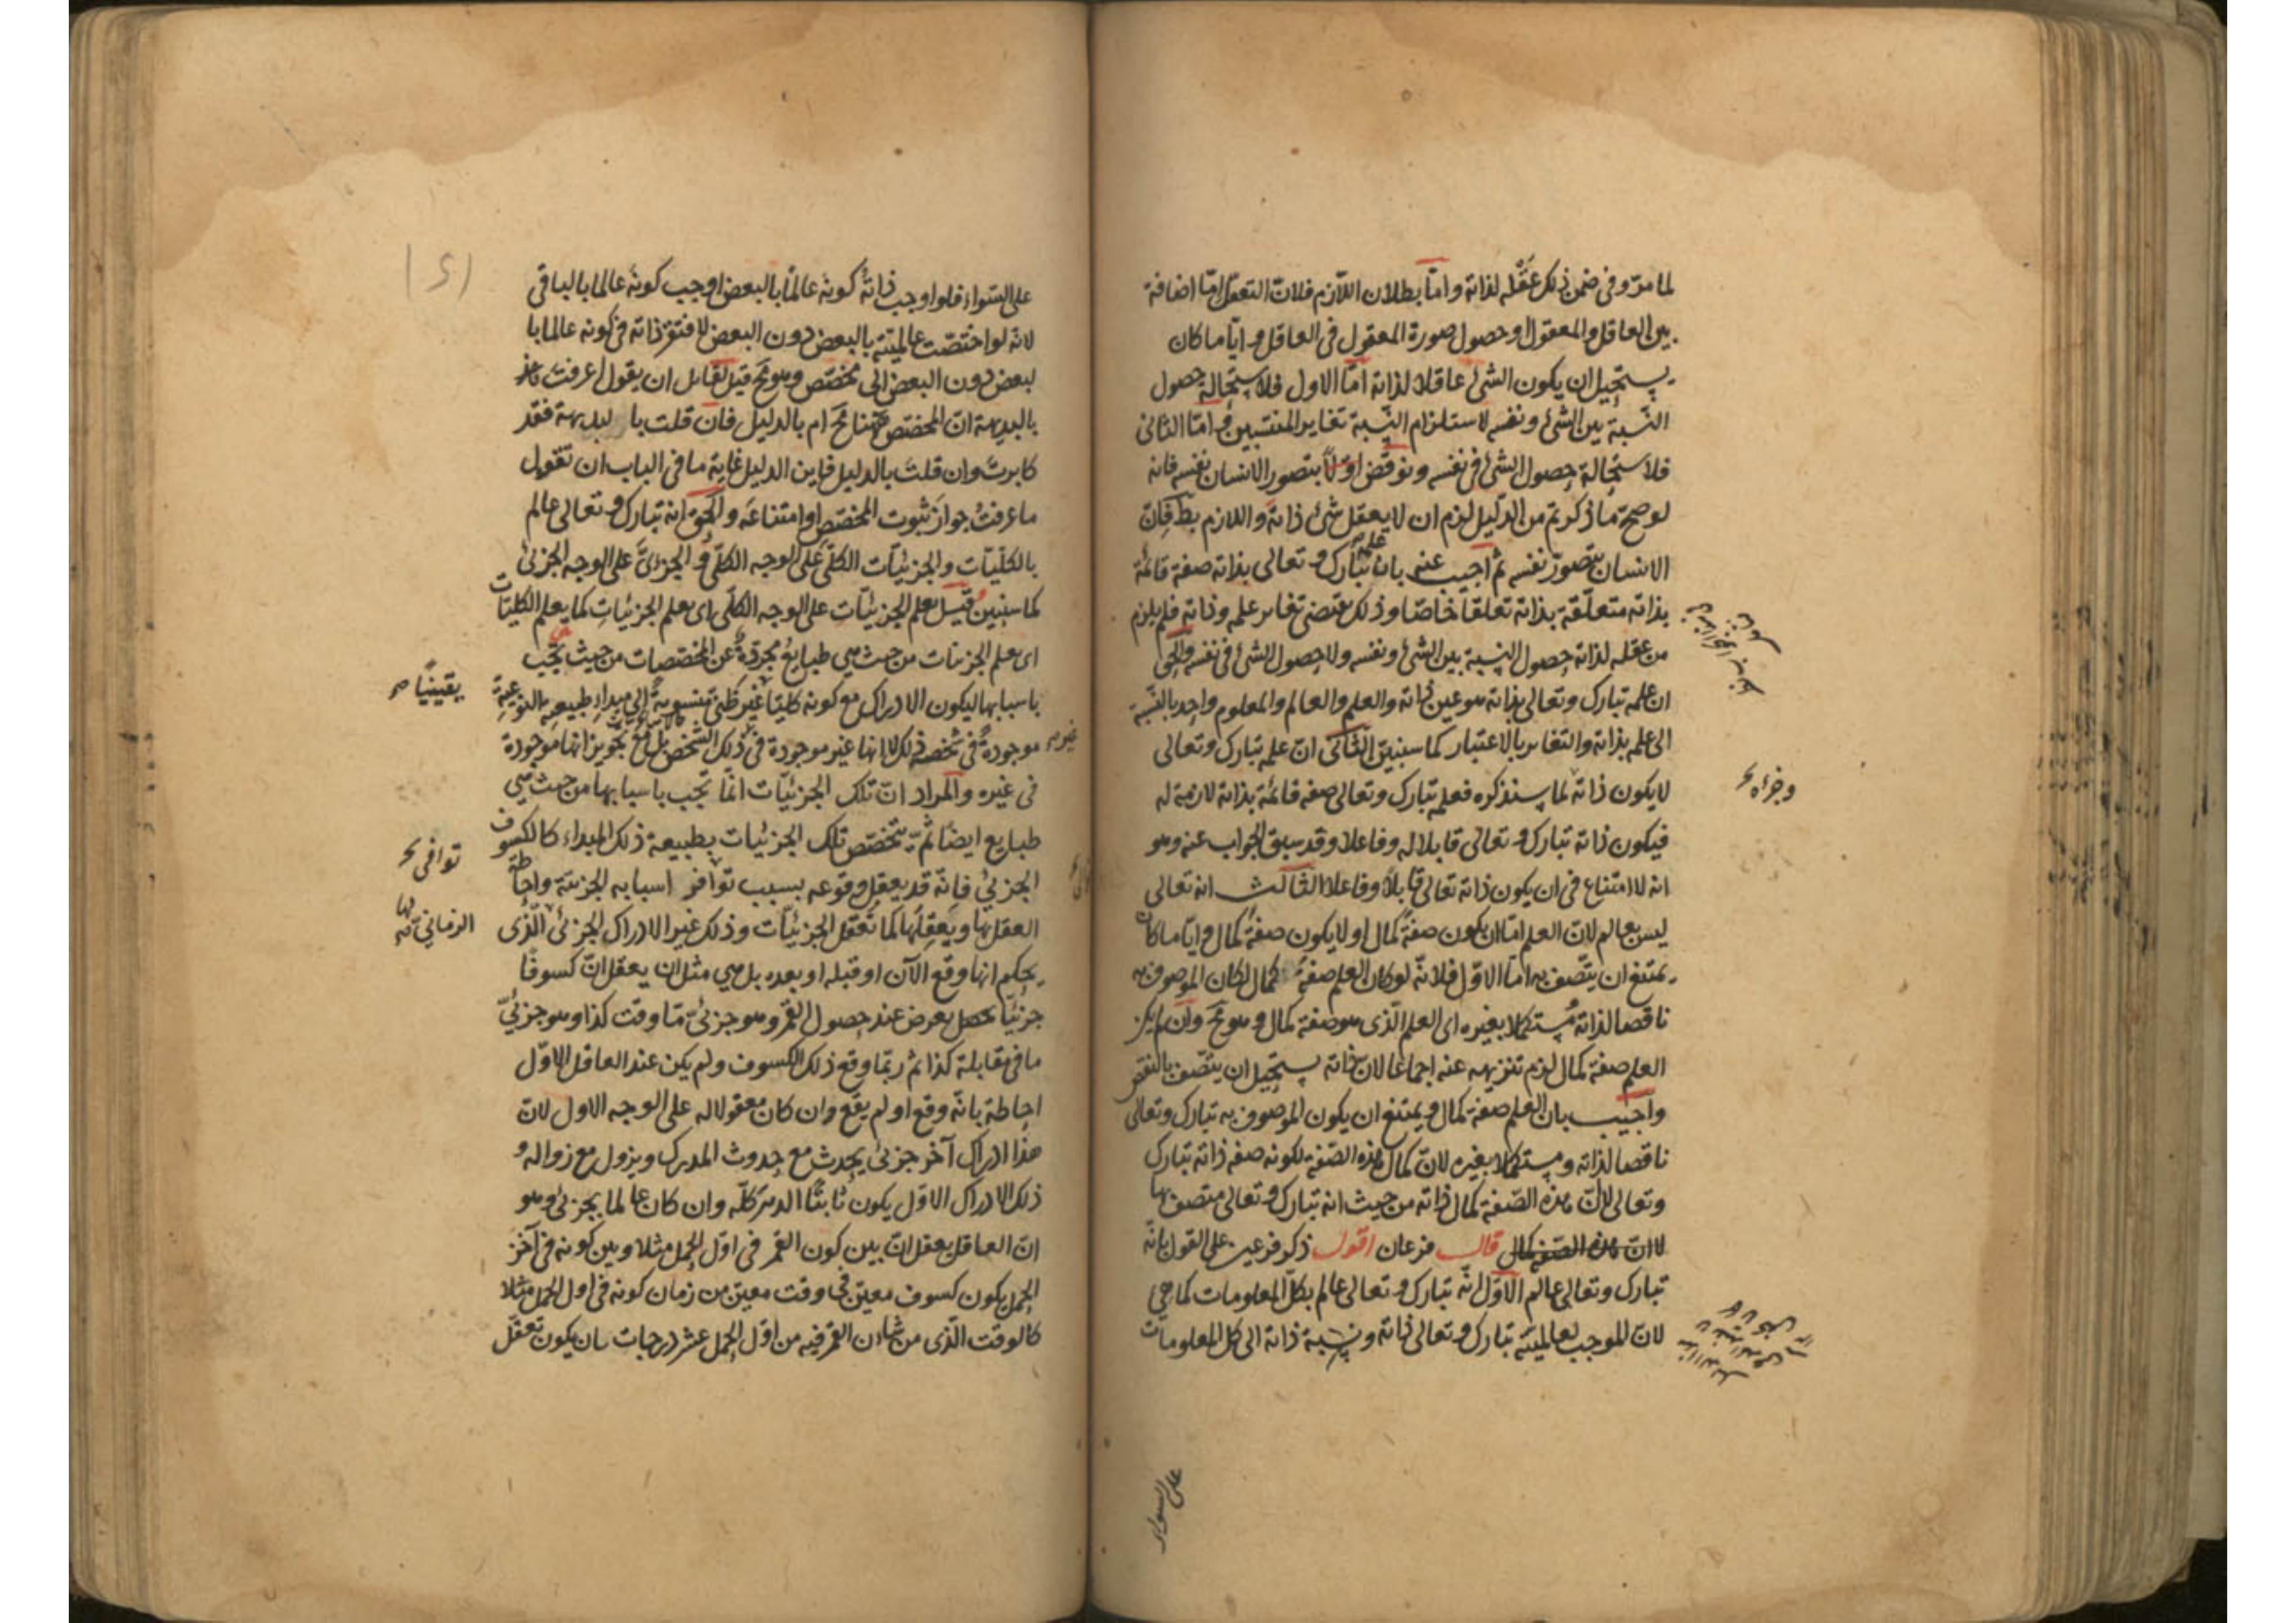 لما مرّ وفى ضمن ذلك عَقْله لذاته وامّا بطلان اللّازم فلانّ التعقّل امّا اضافة
بين العاقل والمعقول او حصول صورة المعقول فى العاقل وايّاما كان
يستحيل ان يكون الشئ عاقلا لذاته امّا الاول فلاستحالة حصول
النّسبة بين الشئ ونفسه لاستلزام النّسبة تغاير المنتسبين وامّا الثانى
فلاستحالة حصول الشئ فى نفسه ونوقض اوّلاً بتصور الانسان نفسه فانه
لو صحّ ما ذكرتم من الدّليل لزم ان لا يعقل شئ ذاته واللازم بط فانّ
الانسان يتصوّر نفسه ثم اجيب عنه بان علمه تبارك وتعالى بذاته صفة قائمة
بذاته متعلّقة بذاته تعلقاً خاصّا وذلك يقتضى تغاير علمه وذاته فلم يلزم
من عقله لذاته حصول النسبة بين الشئ ونفسه ولا حصول الشئ فى نفسه والحق
ان علمه تبارك وتعالى بذاته هو عين ذاته والعلم والعالم والمعلوم واحد بالنّسبة
الى علمه بذاته والتغاير بالاعتبار كما سنبين الثّانى انّ علمه تبارك وتعالى
لا يكون ذاته لما سنذكره فعلمه تبارك وتعالى صفة قائمة بذاته لازمة له
وجزاه
فيكون ذاته تبارك وتعالى قابلا له وفاعلا وقد سبق الجواب عنه وهو
انه لا امتناع فى ان يكون ذاته تعالى قابلاً وفاعلا الثّالث انه تعالى
ليس بعالم لانّ العلم امّا ان يكون صفة كمال او لا يكون صفة كمال وايّاما كان
يمتنع ان يتّصف به امّا الاوّل فلانّه لو كان العلم صفة كمال لكان الموصوف به
ناقصا لذاته مُستكملا بغيره اى العلم الّذى هو صفة كمال وهو مح وان لم يكن
العلم صفة كمال لزم تنزيهه عنه اجماعا لانّ ذاته يستحيل ان يتّصف بالنقص
واجيب بان العلم صفة كمال ويمتنع ان يكون الموصوف به تبارك وتعالى
ناقصا لذاته ومستكملا بغيره لانّ كمال هذه الصّفة لكونه صفة ذاته تبارك
وتعالى لا انّ هذه الصّفة كمال ذاته من حيث انه تبارك وتعالى متصف بها
لا انّ هذه الصّفة كمال قال فرعان اقول ذكر فرعين على القول بانّه
تبارك وتعالى عالم الاوّل انّه تبارك وتعالى عالم بكلّ المعلومات كما هى
لانّ الموجب لعالميّته تبارك وتعالى ذاته ونسبة ذاته الى كل المعلومات
على السواء
على السّواء فلو اوجب ذاتهُ كونه عالمًا بالبعض اوجب كونه عالما بالباقى
لانّه لو اختصّت عالميّته بالبعض دون البعض لافتقر ذاته فى كونه عالما با
لبعض دون البعض الى مخصّص وهو مح قيل لقائل ان يقول اعرفت
بالبديهة انّ المخصّص ههنا مح ام بالدليل فان قلت با لبديهة فقد
كابرتَ وان قلتَ بالدليل فاين الدليل غاية ما فى الباب ان تقول
ما عرفتُ جوازَ ثبوت المخصّص او امتناعَه والحق انه تبارك وتعالى عالم
بالكلّيّات والجزئيّات الكلّىّ على الوجه الكلّىّ والجزئىّ على الوجه الجزئى
كما سنبين قيل يعلم الجزئيّات على الوجه الكلّى اى يعلم الجزئيات كما يعلم الكليّات
اى يعلم الجزئيات من حيث هى طبايع مجرّدة عن المخصصات من حيث تجب
باسبابها ليكون الادراك مع كونه كليّا غير ظنّى منسوبة الى مبداء طبيعيّة النوعيّة
يقينيًّا صح
موجودة فى شخصه ذلك لا انها غير موجودة فى ذلك الشّخص بل مع تجويز انها موجودة
فى غيره والمراد انّ تلك الجزئيّات انّما تجب باسبابها من حيث هى
طبايع ايضا ثمّ تتخصّص تلك الجزئيات بطبيعة ذلك المبداء كالكسوف
الجزئىّ فانّه قد يعقل وقوعه بسبب توافر اسبابه الجزئية واحاطة
توافى
العقل بها ويعقلها كما تُعقل الجزئيّات وذلك غير الادراك الجزئى الّذى
الزمانىّ
يحكم انها وقع الآن او قبله او بعده بل هى مثل ان يعقل انّ كسوفا
جزئيّا يعرض عند حصول القمر وهو جزئىّ ما وقت كذا وهو جزئىّ
ما فى مقابلة كذا ثم ربّما وقع ذلك الكسوف ولم يكن عند العاقل الاوّل
احاطة بانّه وقع او لم يقع وان كان معقولا له على الوجه الاول لانّ
هذا ادراك آخر جزئى يحدث مع حدوث المدرك ويزول مع زواله و
ذلك الادراك الاوّل يكون ثابتًا الدهر كلّه وان كان عالما بجزئى وهو
انّ العاقل يعقل انّ بين كون القمر فى اوّل الحمل مثلا وبين كونه فى آخر
الحمل يكون كسوف معيّن فى وقت معيّن من زمان كونه فى اول الحمل مثلا
كالوقت الّذى من شان القمر فيه من اوّل الحمل عشر درجات بان يكون تعقّل